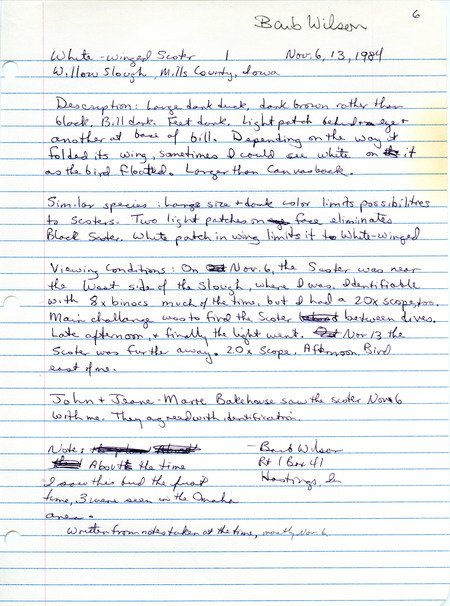 6
Barb Wilson
White-winged Scoter 1 Nov. 6, 13, 1984
Willow Slough, Mills County, Iowa
Description: Large dark duck, dark brown rather than
black. Bill dark. Feet dark. Light patch behind eye &
another at base of bill. Depending on the way it
folded its wing, sometimes I could see white on it
as the bird floated. Larger than Canvasback.
Similar species: Large size & dark color limits possibilities
to Scoters. Two light patches on face eliminates
Black Scoter. White patch in wing limits it to White-winged
Viewing Conditions: On Nov. 6, the Scoter was near
the West side of the Slough, where I was. Identifiable
with 8x binocs much of the time, but I had a 20x scope, too.
Main challange was to find the Scoter between dives.
Late afternoon, & finally the light went. Nov 13 the
Scoter was further away. 20x Scope. Afternoon. Bird
east of me.
John & Jeane-Marie Bakehouse saw the scoter Nov 6
with me. They agreed with identification.
Note: - Barb Wilson
About the time Rt 1 Box 41
I saw this bird the first Hastings, Ia
time, 3 were seen in the Omaha
area.
Written from notes taken at the time, mostly Nov. 6.